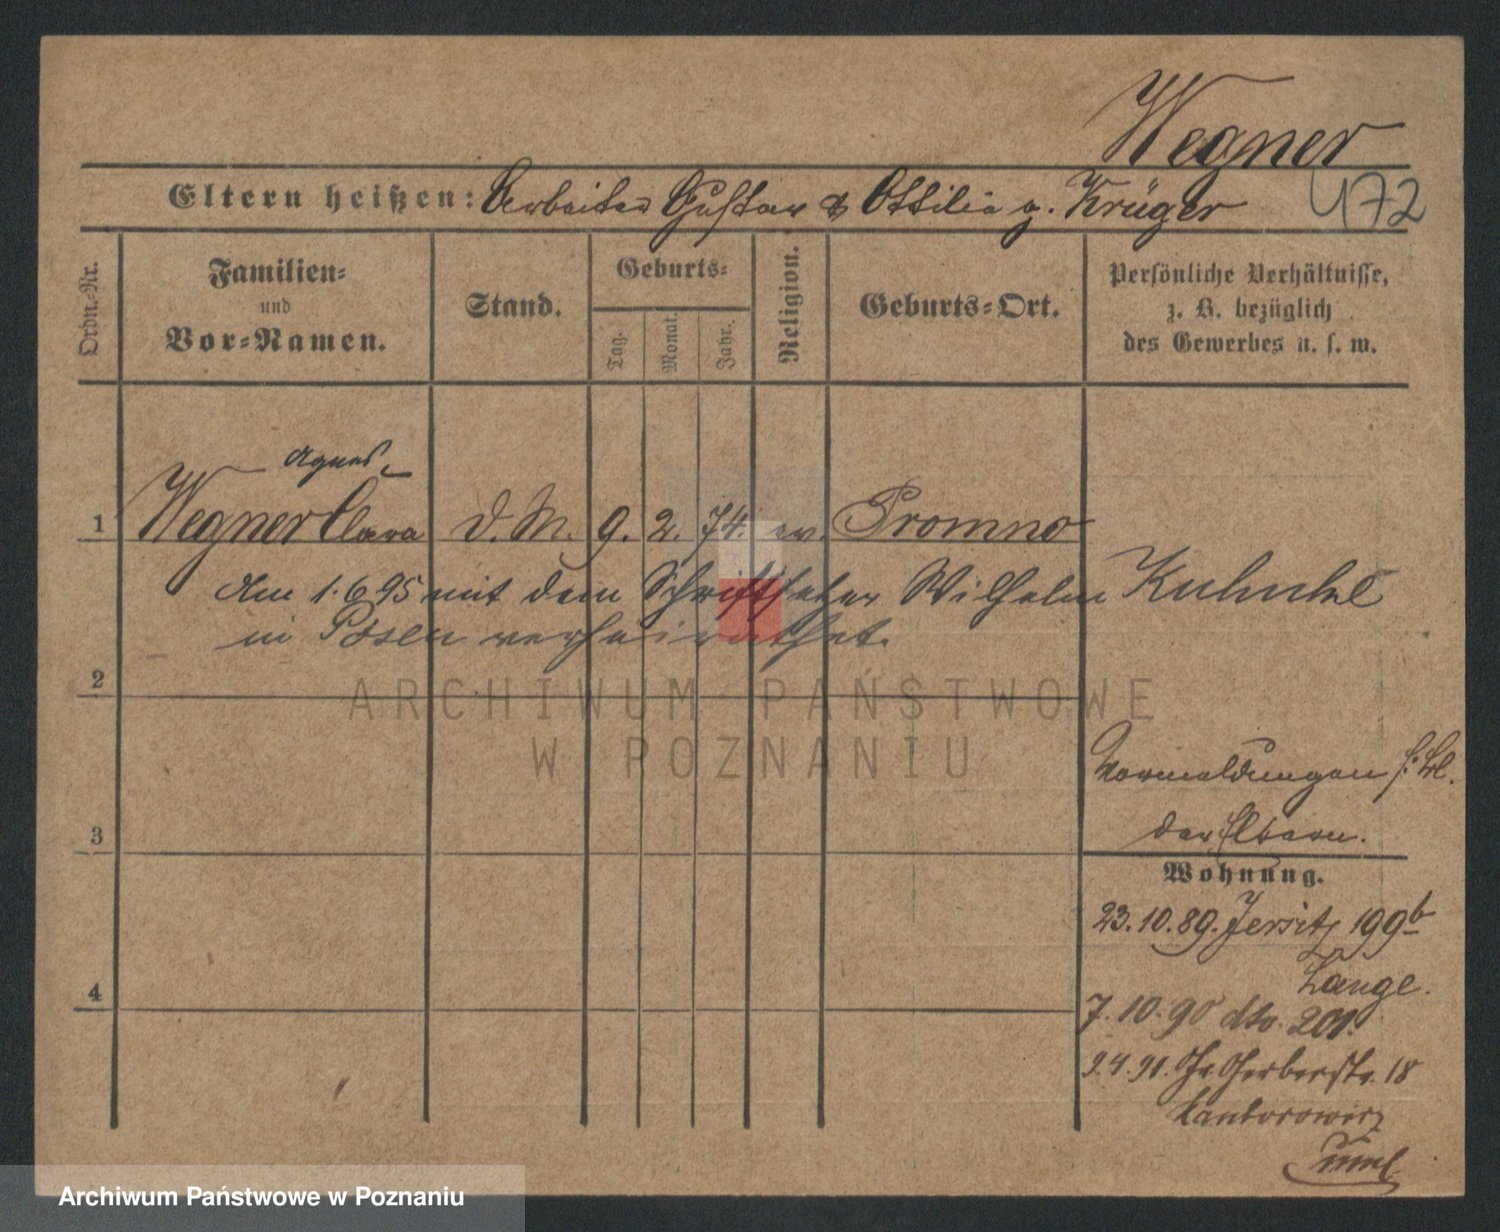 Wegner
Eltern heißen: Arbeiter Gustav & Ottilie g. Krüger 472
Ordn.-Nr.
Familien-
und
Vor-Namen.
Stand.
Geburts-
Tag.
Monat.
Jahr.
Religion.
Geburts-Ort.
Persönliche Verhältnisse,
z. B. bezüglich
des Gewerbes u. s. w.
Agnes
1 Wegner Clara D. M. 9. 2. 74. ev. Promno
Am 1.6 95 mit dem Schriftsetzer Wilhelm Kuhnke
in Posen verheirathet.
2
ARCHIWUM PAŃSTWOWE
W POZNANIU
Vormeldungen s:
3 der Eltern.
Wohnung.
23.10.89. Jersitz 199b
Lange.
4
7.10.90 dto. 201.
9.4.91. Gr. Gerberstr. 18
Kantorowicz
Archiwum Państwowe w Poznaniu